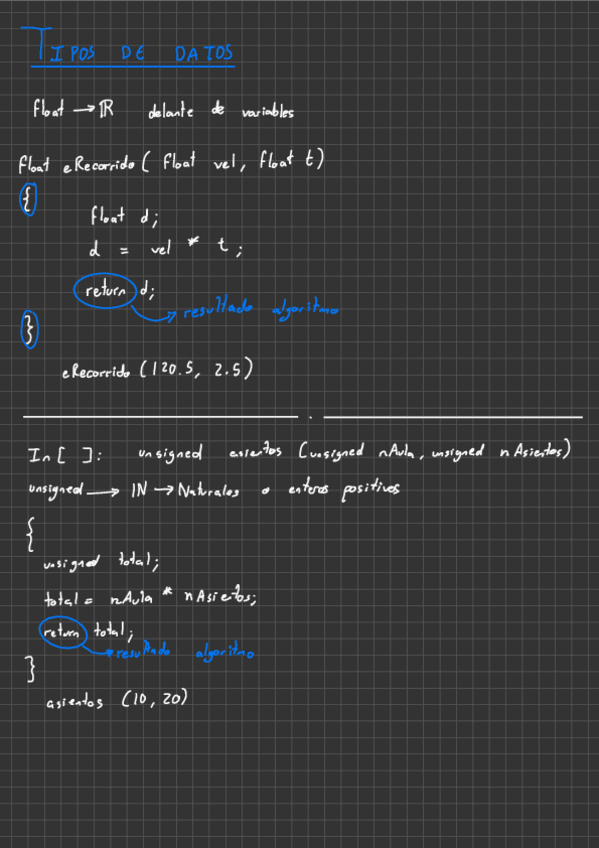 TIPOS DE DATOS
float → ℝ delante de variables
float eRecorrido ( float vel, float t)
{
float d;
d = vel * t;
return d;
→ resultado algoritmo
}
eRecorrido (120.5, 2.5)
In [ ]: unsigned asientos (unsigned nAula, unsigned nAsientos)
unsigned → IN → Naturales o enteros positivos
{
unsigned total;
total = nAula * nAsientos;
return total;
→ resultado algoritmo
}
asientos (10, 20)